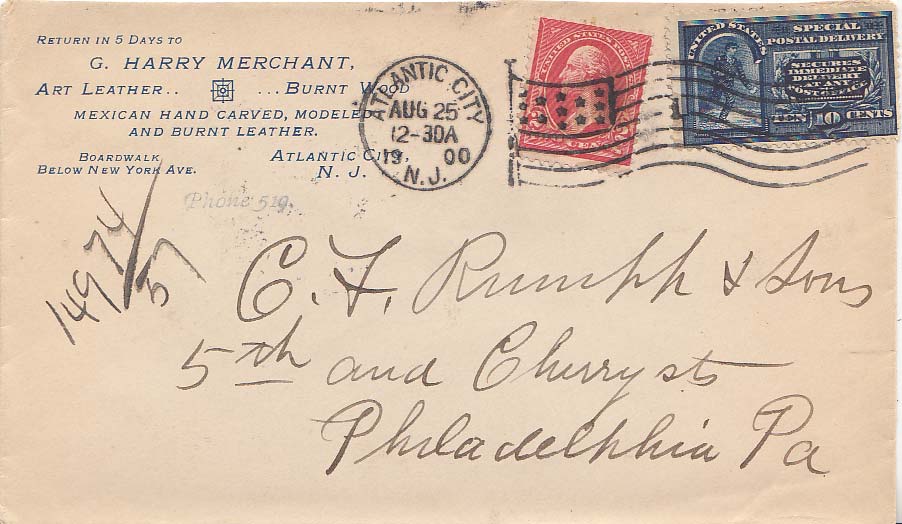 RETURN IN 5 DAYS TO
G. HARRY MERCHANT,
ART LEATHER.. ...BURNT WOOD
MEXICAN HAND CARVED, MODELED
AND BURNT LEATHER.
BOARDWALK
BELOW NEW YORK AVE.
ATLANTIC CITY,
N. J.
Phone 519.
ATLANTIC CITY
AUG 25
12-30A
19 00
N.J.
UNITED STATES POSTAGE
2 CENTS 2
UNITED STATES
SPECIAL
POSTAL DELIVERY
SECURES
IMMEDIATE
DELIVERY
AT ANY
POST OFFICE
TEN 10 CENTS
1
14974/57
C. F. Rumpp & Sons
5th and Cherry sts
Philadelphia Pa